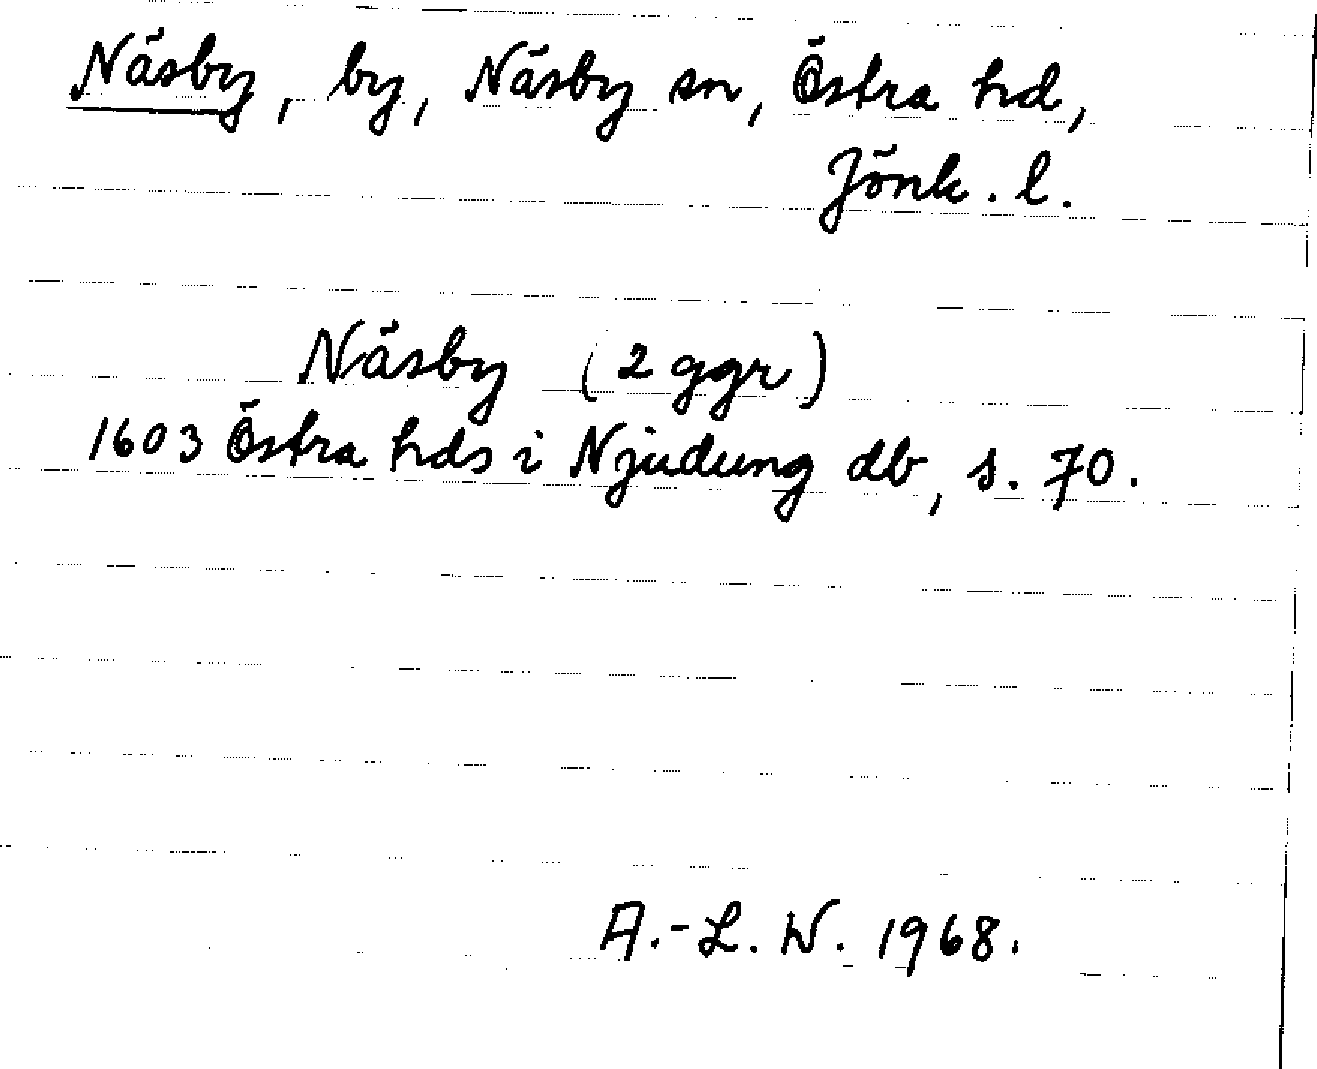 Näsby, by, Näsby sn, Östra hd,
Jönk. l.
Näsby (2 ggr)
1603 Östra hds i Njudung db, s. 70.
A.-L. W. 1968.